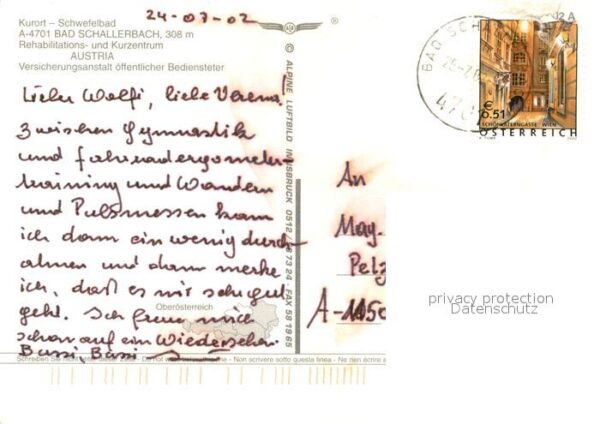 24-07-02
Kurort - Schwefelbad
A-4701 BAD SCHALLERBACH, 308 m
Rehabilitations- und Kurzentrum
AUSTRIA
Versicherungsanstalt öffentlicher Bediensteter
Lieber Wolfi, liebe Verena!
Zwischen Gymnastik
und Fahrradergometer-
training und Wandern
und Pulsmessen kann
ich dann ein wenig durch-
atmen und dann merke
ich, daß es mir sehr gut
geht. Ich freue mich
schon auf ein Wiedersehen
Bussi, Bussi
Oberösterreich
© ALPINE LUFTBILD INNSBRUCK 0512 / 58 19 65
BAD SCHA
€ 0.51
SCHÖNLATERNGASSE, WIEN
ÖSTERREICH
An
May-
Pelz
A-1050
privacy protection
Datenschutz
Schreiben Sie nicht unter diese Linie - Do not write below this line - Non scrivere sotto questa linea - Ne rien écrire a